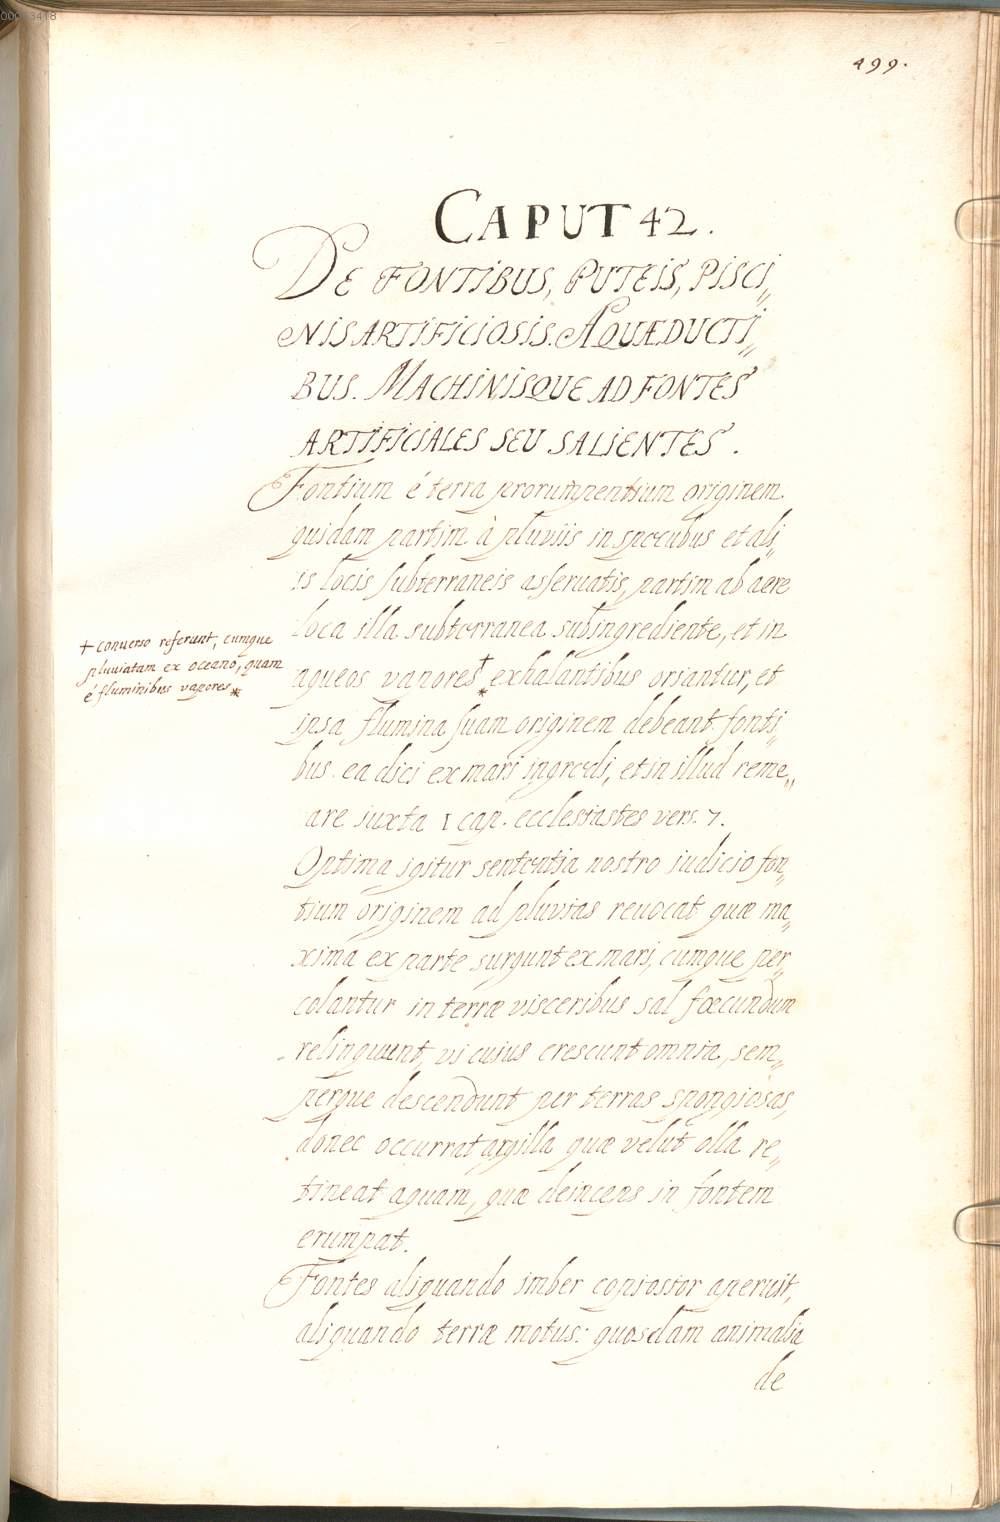 00003418
499.
CAPUT 42.
DE FONTIBUS, PUTEIS, PISCI„
NIS ARTIFICIOSIS. AQUÆDUCTI„
BUS. MACHINISQUE AD FONTES
ARTIFICIALES SEU SALIENTES.
Fontium é terra prorumpentium originem
quidam partim à pluviis in specubus et ali„
is locis subterraneis asseruatis, partim ab aere
loca illa subterranea subingrediente, et in
+ conuerso referunt, cumque
pluuiatam ex oceano, quam
é fluminibus vapores *
aqueos vapores + * exhalantibus oriantur, et
ipsa flumina suam originem debeant fonti„
bus. ea dici ex mari ingredi, et in illud reme„
are juxta 1 cap. ecclesiastes vers. 7.
Optima igitur sententia nostro judicio fon„
tium originem ad pluvias revocat quæ ma„
xima ex parte surgunt ex mari, cumque per„
colantur in terræ visceribus sal fœcundum
relinquunt, vi cujus crescunt omnia, sem„
perque descendunt per terras spongiosas,
donec occurrat argilla quæ velut olla re„
tineat aquam, quæ deinceps in fontem
erumpat.
Fontes aliquando imber copiosior aperuit,
aliquando terræ motus: quosdam animalia
de